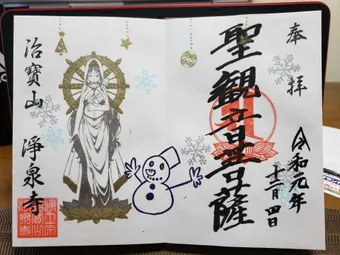 奉拝
聖観音菩薩
令和元年
十二月四日
治寶山 淨泉寺